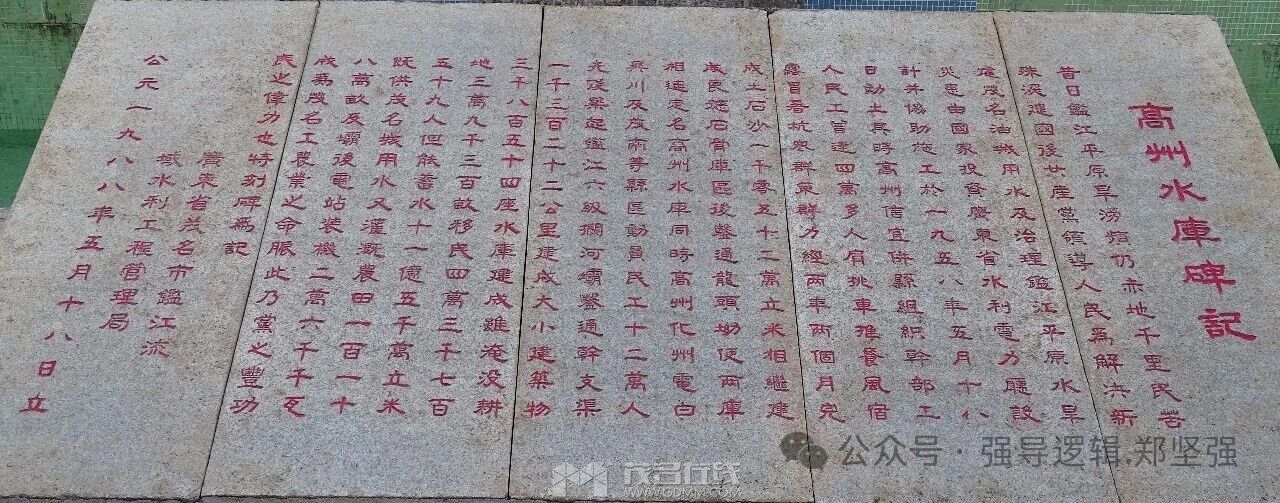 高州水庫碑記
昔日鑑江平原旱澇頻仍赤地千里民苦
殊深建國後共產黨領導人民爲解決新
建茂名油城用水及治理鑑江平原水旱
災患由國家投資廣東省水利電力廳設
計并協助施工於一九五八年五月十八
日動土其時高州信宜併縣組織幹部工
人民工曾達四萬多人肩挑車推餐風宿
露冒暑抗寒群策群力經两年两個月完
成土石沙一千零五十二萬立米相繼建
成良德石骨庫區後鑿通龍頭坳使两庫
相連定名高州水庫同時高州化州電白
吳川及茂南等縣區動員民工十二萬人
先後築起鑑江六級攔河壩鑿通幹支渠
一千三百二十二公里建成大小建築物
三千八百五十四座水庫建成雖淹没耕
地三萬九千三百畝移民四萬三千七百
五十九人但能蓄水十一億五千萬立米
既供茂名城用水又灌溉農田一百一十
八萬畝及壩後電站装機二萬六千千瓦
成爲茂名工農業之命脈此乃黨之豐功
民之偉力也特刻碑爲記
廣東省茂名市鑑江流
域水利工程管理局
公元一九八八年五月十八日立
公众号·强导逻辑.郑坚强
茂名在线
WWW.GDMM.COM